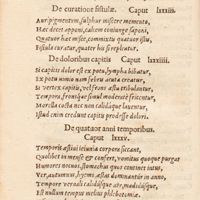 De curatione fistulæ. Caput lxxxiii.
Auripigmentum, sulphur miscere memento,
Hæc decet apponi, calcem coniunge saponi,
Quatuor hæc misce, commixtis quatuor istis,
Fistula curatur, quater his si repleatur.
De doloribus capitis Caput lxxxiiii.
Si capitis dolor est ex potu, lympha bibatur,
Ex potu nimio nam febris acuta creatur
Si vertex capitis, vel frons æstu tribulantur,
Tempora, fronsque simul moderate sæpe fricentur,
Morella cocta nec non calidáque laventur,
Istud enim credunt capitis prodesse dolori.
De quatuor anni temporibus.
Caput lxxxv.
Temporis æstiui ieiunia corpora siccant,
Quolibet in mense & confert, vomitus quoque purgat
Humores nocuos, stomachi quos continet intus,
Ver, autumnus, hyems, æstas dominantur in anno,
Tempore vernali calidúsque aër, madidúsque,
Et nullum tempus melius phlebotomia.